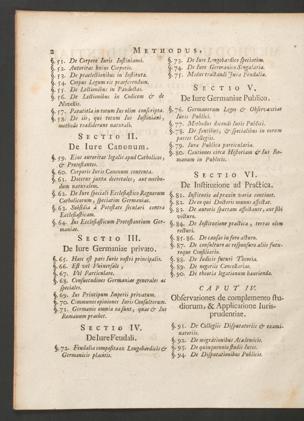 2 METHODUS,
§. 51. De Corpore Juris Justinianei.
§. 52. Autoritas huius Corporis.
§. 53. De praelectionibus in Instituta.
§. 54. Corpus Legum est praeferendum.
§. 55. De Lectionibus in Pandectas.
§. 56. De Lectionibus in Codicem & de
Novellis.
§. 57. Paratitla in totum Jus olim conscripta.
§. 58. De iis, qui totum Jus Justiniani,
methodo tradiderunt naturali.
SECTIO II.
De Iure Canonum.
§. 59. Ejus autoritas legalis apud Catholicos,
& Protestantes.
§. 60. Corporis Juris Canonum contenta.
§. 61. Docetur juxta decretales, aut methodum
naturalem.
§. 62. De Iure speciali Ecclesiastico Regnorum
Catholicorum, speciatim Germaniae.
§. 63. Subsidia à Potestate seculari contra
Ecclesiasticam.
§. 64. Jus Ecclesiasticum Protestantium Germaniae.
SECTIO III.
De Iure Germaniae privato.
§. 65. Haec est pars Juris nostri principalis.
§. 66. Est vel Universale,
§. 67. Vel Particulare.
§. 68. Consuetudines Germaniae generales ac
speciales.
§. 69. Jus Principum Imperii privatum.
§. 70. Communes opiniones Juris Consultorum.
§. 71. Germanis omnia nosunt, quae & Jus
Romanum praebet.
SECTIO IV.
De Iure Feudali.
§. 72. Feudalia composita ex Longobardicis &
Germanicis placitis.
§. 73. De Iure Longobardico speciatim.
§. 74. De Iure Germanico Singularia.
§. 75. Modus tractandi Jura Feudalia.
SECTIO V.
De Iure Germaniae Publico.
§. 76. Germanorum Leges & Observantiae
Juris Publici.
§. 77. Methodus docendi Juris Publici.
§. 78. De fontibus, & specialibus in eorum
partes Collegiis.
§. 79. Jura Publica particularia.
§. 80. Cautiones circa Historiam & Jus Romanum
in Publicis.
SECTIO VI.
De Institutione ad Practica.
§. 81. Institutio ad praxin toria continua.
§. 82. De eo qui Doctoris munus affectat.
§. 83. De autoris spartam affectante, aut sibi
§. 84. De Institutione practica, terras olim
§. 85. 86. De causis in foro actoris.
§. 87. De consultore ac responsore aliis futuroque
Consiliario.
§. 88. De Judicis futuri Theoria.
§. 89. De negotiis Cancellariae.
§. 90. De theoria legationum haurienda.
CAPUT IV.
Observationes de complemento studiorum,
& Applicatione Jurisprudentiae.
§. 91. De Collegiis Disputatoriis & examinatoriis.
§. 92. De migrationibus Academicis.
§. 93. De quinquennio studii Juris.
§. 94. De Disputationibus Publicis.